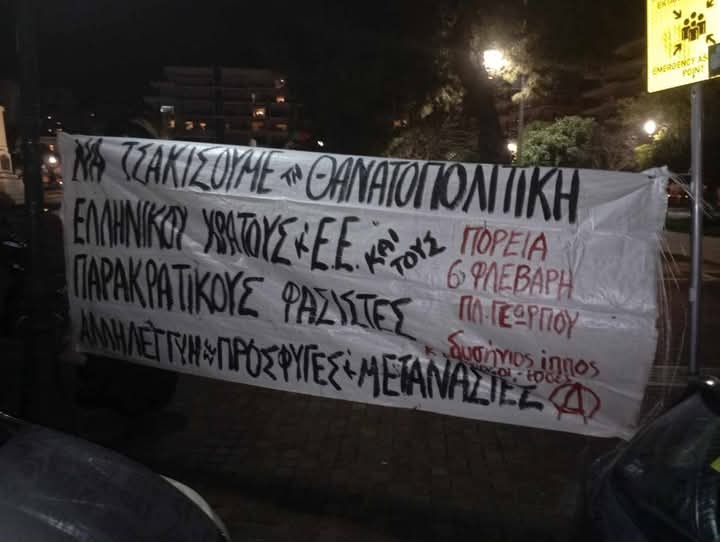 ΝΑ ΤΣΑΚΙΣΟΥΜΕ τη ΘΑΝΑΤΟΠΟΛΙΤΙΚΗ
ΕΛΛΗΝΙΚΟΥ ΚΡΑΤΟΥΣ κ' Ε.Ε. ΚΑΙ ΤΟΥΣ
ΠΑΡΑΚΡΑΤΙΚΟΥΣ ΦΑΣΙΣΤΕΣ
ΑΛΛΗΛΕΓΓΥΗ ΠΡΟΣΦΥΓΕΣ κ' ΜΕΤΑΝΑΣΤΕΣ
ΠΟΡΕΙΑ
6 ΦΛΕΒΑΡΗ
ΠΛ. ΓΕΩΡΓΙΟΥ
δυσήνιος ίππος
Α
EMERGENCY AS
POINT